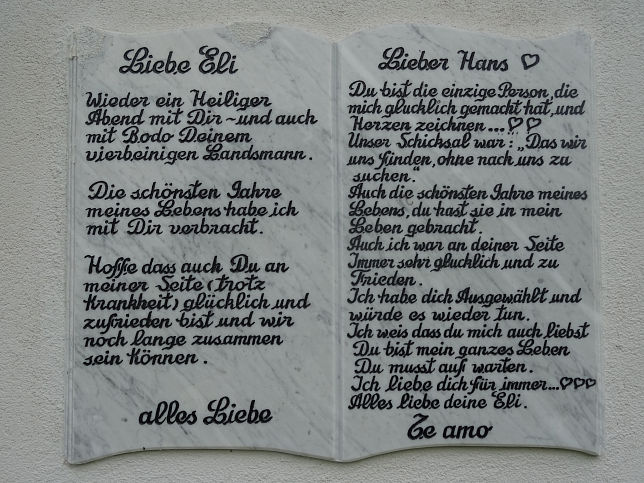 Liebe Eli
Wieder ein Heiliger
Abend mit Dir ~ und auch
mit Bodo Deinem
vierbeinigen Landsmann.
Die schönsten Jahre
meines Lebens habe ich
mit Dir verbracht.
Hoffe dass auch Du an
meiner Seite (trotz
Krankheit) glücklich und
zufrieden bist und wir
noch lange zusammen
sein können.
alles Liebe
Lieber Hans ♡
Du bist die einzige Person, die
mich glucklich gemacht hat, und
Herzen zeichnen...♡♡
Unser Schicksal war: „Das wir
uns finden, ohne nach uns zu
suchen."
Auch die schönsten Jahre meines
Lebens, du hast sie in mein
Leben gebracht.
Auch ich war an deiner Seite
Immer sehr glucklich und zu
Frieden.
Ich habe dich Ausgewählt und
würde es wieder tun.
Ich weis dass du mich auch liebst
Du bist mein ganzes Leben
Du musst auf warten.
Ich liebe dich für immer...♡♡♡
Alles liebe deine Eli.
Te amo